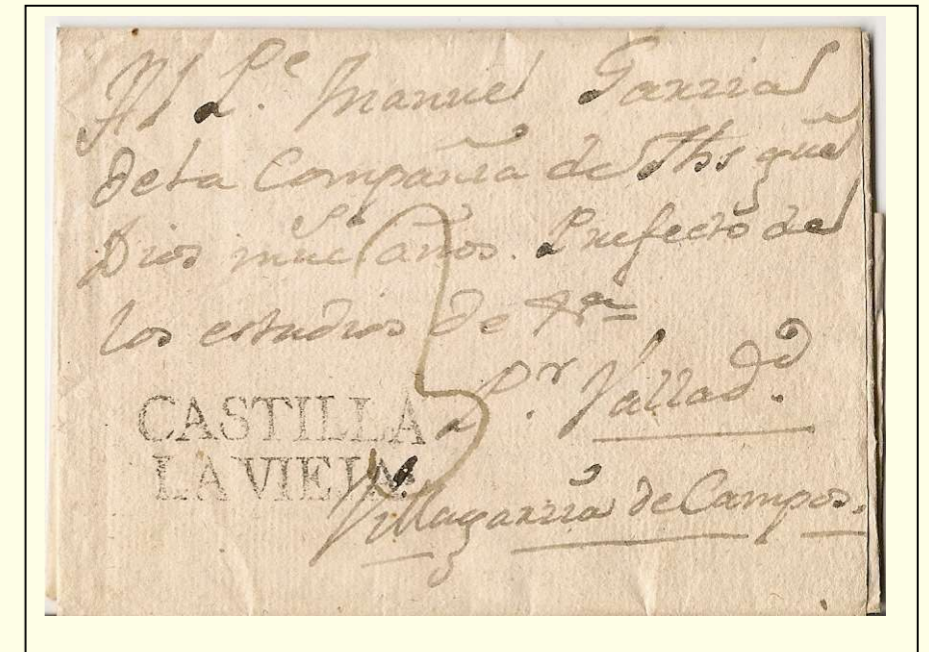 Al P.e Manuel Garzia
de la Compañia de Jhs que
Dios muc.s años. Prefecto de
los estudios de
P.r Vallad.d
CASTILLA
LA VIEJA
Villagarzia de Campos.
5